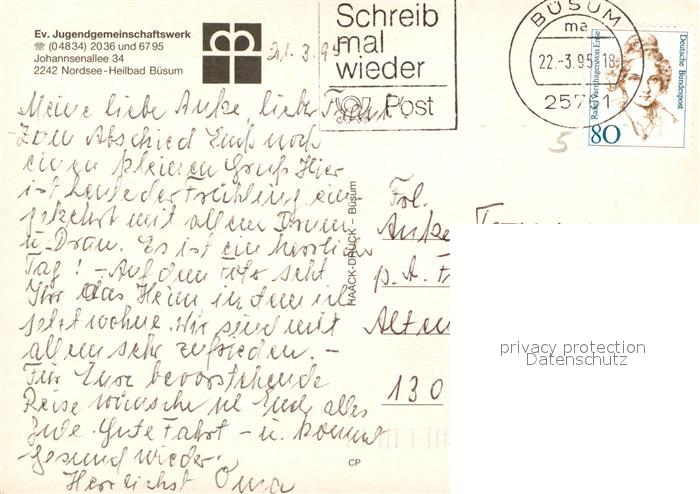 Ev. Jugendgemeinschaftswerk
☎ (04834) 2036 und 6795
Johannsenallee 34
2242 Nordsee-Heilbad Büsum
21.3.95
Schreib
mal
wieder
Post
BÜSUM
ma
22.-3.95-18
25761
Deutsche Bundespost
Rahel Varnhagen von Ense
80
5
Meine liebe Anke, lieber
Zum Abschied Euch noch
einen kleinen Gruß Hier
ist heute der Frühling ein-
gekehrt mit allem Drum
u. Dran. Es ist ein herrlicher
Tag! – Auf dem Foto seht
Ihr das Heim in dem ich
jetzt wohne. Wir sind mit
allem sehr zufrieden. –
Für Eure bevorstehende
Reise wünsche ich Euch alles
Gute. Gute Fahrt – u. kommt
gesund wieder.
Herzlichst Oma
HAACK-DRUCK – Büsum
CP
Frl.
Anke
p. A.
Alten
130
privacy protection
Datenschutz